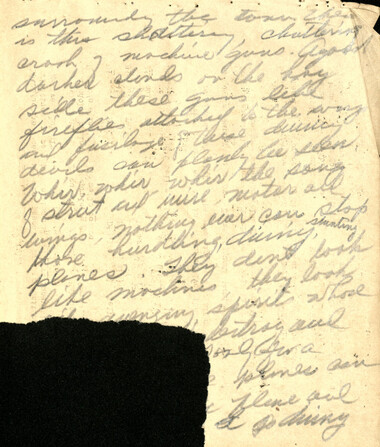 surrounds the town, there
is this shattering, chattering
crash of machine guns. Against
darker clouds on the bay
side these guns like
fireflies attached to the wing
and fuselage. These diving
devils can plainly be seen
Whir, whir whir the song
of strut and wire, motor all
wings, nothing ever can stop
those hurtling, diving, stunting
planes. They dont look
like machines they look
avenging spirits whose
destroy and
planes can
plane and
go diving